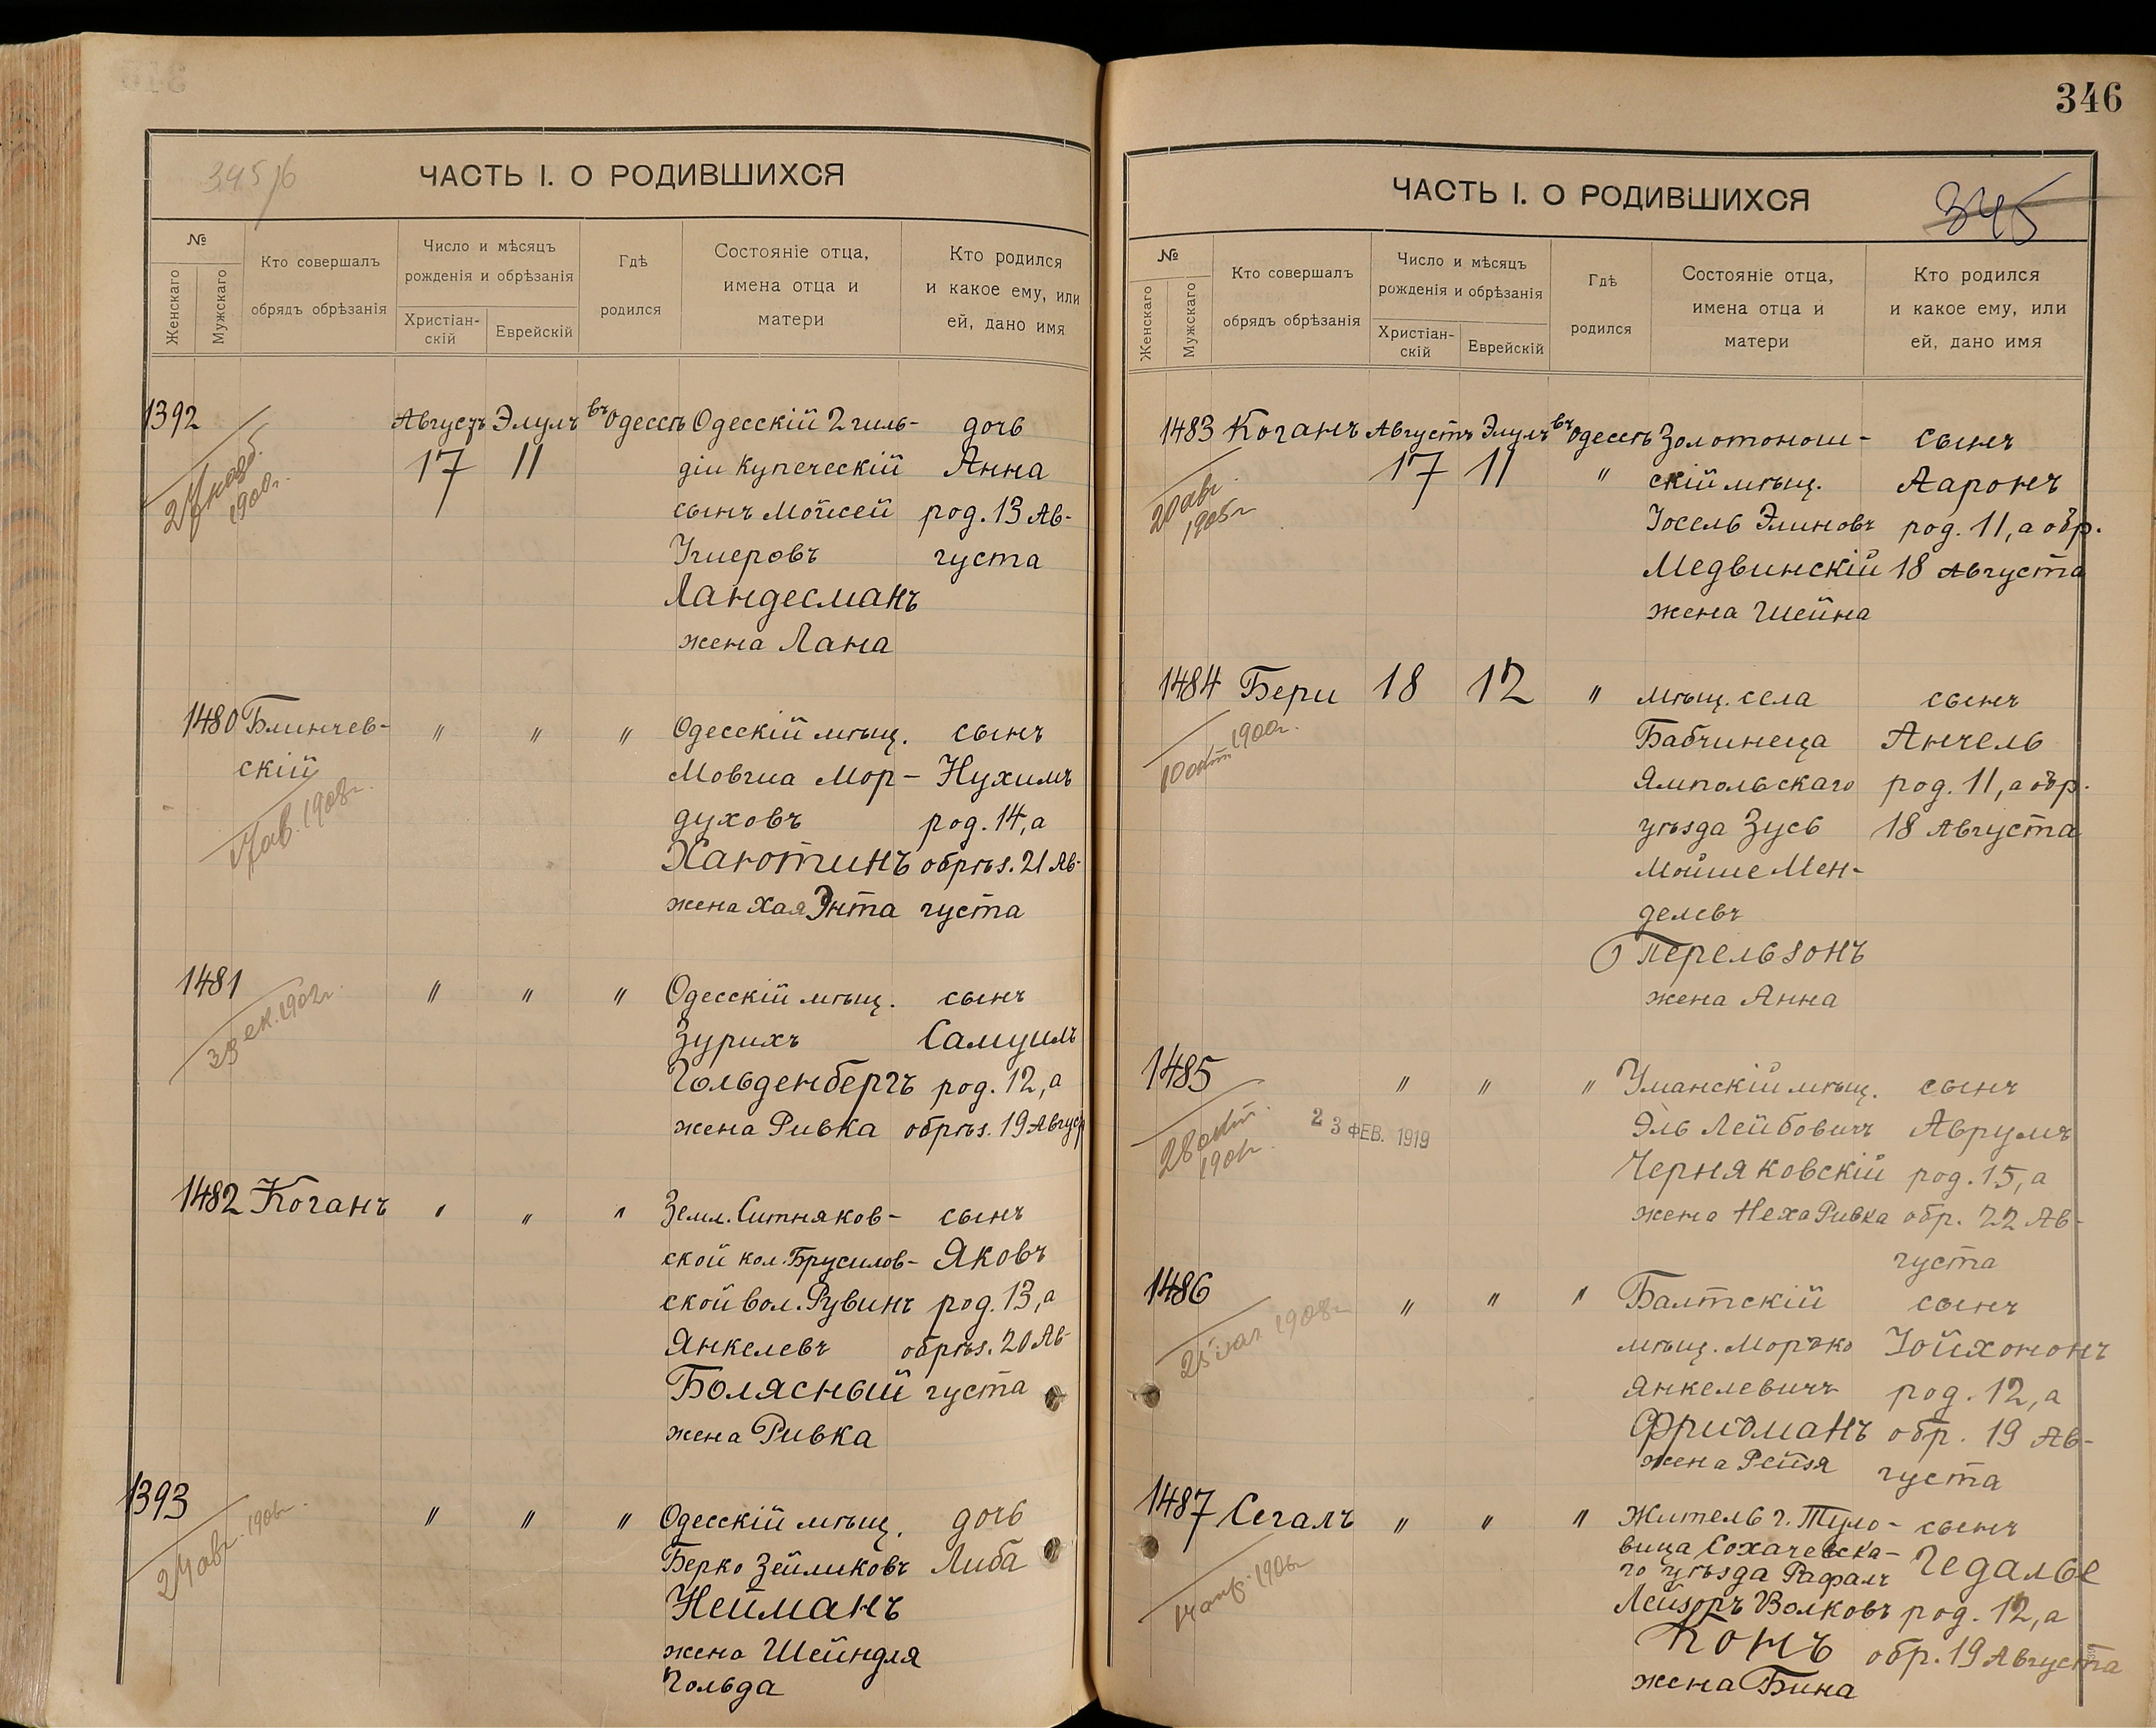 345
ЧАСТЬ I. О РОДИВШИХСЯ
№
Женскаго
Мужскаго
Кто совершалъ
обрядъ обрѣзанія
Число и мѣсяцъ
рожденія и обрѣзанія
Христіан-
скій
Еврейскій
Гдѣ
родился
Состояніе отца,
имена отца и
матери
Кто родился
и какое ему, или
ей, дано имя
1392 Августъ Элулъ въ Одессѣ Одесскій 2 гиль- дочь
17 11 діи купеческій Анна
сынъ Мойсей род. 13 Ав-
Ушеровъ густа
Ландесманъ
жена Лана
1900г.
1480 Блинчев- " " " Одесскій мѣщ. сынъ
скій Мовша Мор- Нухимъ
1908г. духовъ род. 14, а
Хаютинъ обрѣз. 21 Ав-
жена Хая Энта густа
1481 " " " Одесскій мѣщ. сынъ
3 дек. 1902г. Зурихъ Самуилъ
Гольденбергъ род. 12, а
жена Ривка обрѣз. 19 Август
1482 Коганъ " " " Земл. Ситняков- сынъ
ской кол. Брусилов- Яковъ
ской вол. Рувинъ род. 13, а
Янкелевъ обрѣз. 20 Ав-
Болясный густа
жена Ривка
1393 " " " Одесскій мѣщ. дочь
24 авг. 1906г. Берко Зейликовъ Либа
Нейманъ
жена Шейндля
Гольда
346
ЧАСТЬ I. О РОДИВШИХСЯ
345
№
Женскаго
Мужскаго
Кто совершалъ
обрядъ обрѣзанія
Число и мѣсяцъ
рожденія и обрѣзанія
Христіан-
скій
Еврейскій
Гдѣ
родился
Состояніе отца,
имена отца и
матери
Кто родился
и какое ему, или
ей, дано имя
1483 Коганъ Августъ Элулъ въ Одессѣ Золотонош- сынъ
17 11 " скій мѣщ. Ааронъ
20 авг. Іосель Элиновъ род. 11, а обр.
1905г Медвинскій 18 Августа
жена Шейна
1484 Бери 18 12 " мѣщ. села сынъ
10 окт 1900г. Бабчинеца Анчель
Ямпольскаго род. 11, а обр.
уѣзда Зусь 18 Августа
Мойше Мен-
делевъ
Перельзонъ
жена Анна
1485 " " " Уманскій мѣщ. сынъ
28 окт. 2 3 ФЕВ. 1919 Эль Лейбовичъ Аврумъ
1901г. Черняковскій род. 15, а
жена Неха Ривка обр. 22 Ав-
густа
1486 " " " Балтскій сынъ
1908г мѣщ. Моръко Іойхононъ
Янкелевичъ род. 12, а
Фридманъ обр. 19 Ав-
жена Рейзя густа
1487 Сегалъ " " " Житель г. Туло- сынъ
1906г вица Сохачевска-
го уѣзда Рафалъ Гедалье
Лейзоръ Волковъ род. 12, а
Конъ обр. 19 Августа
жена Бина